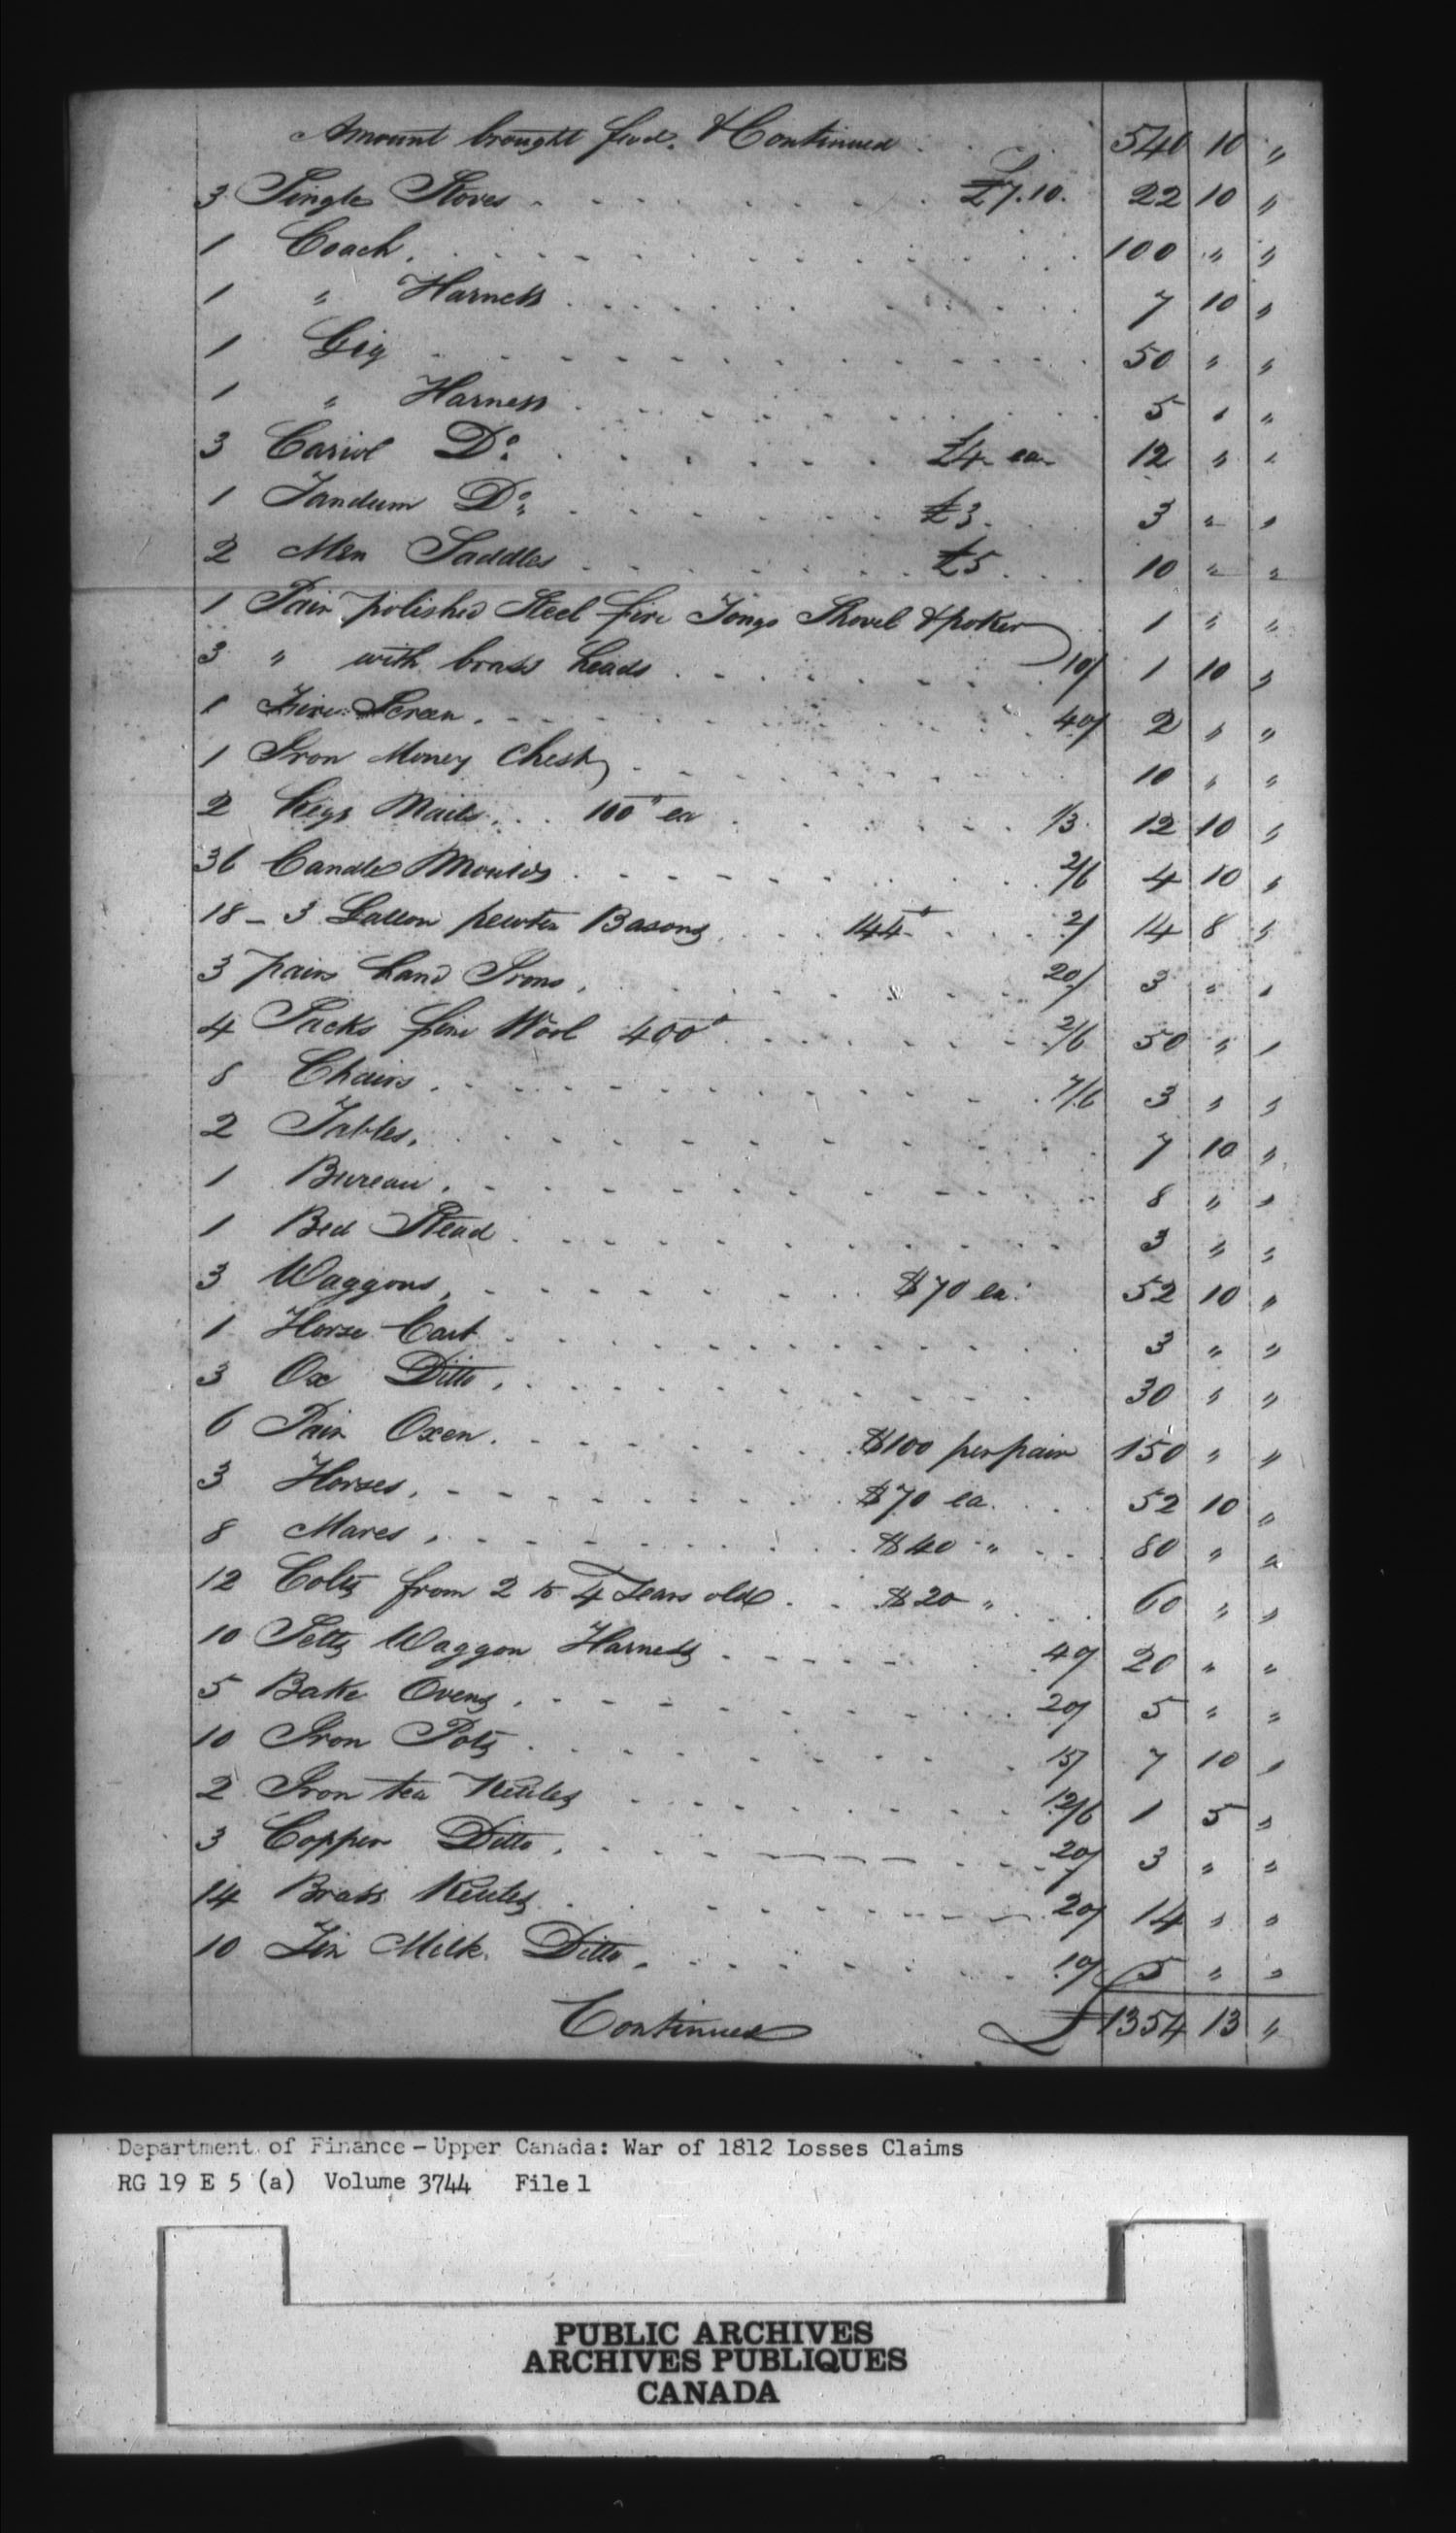 Amount brought forwd. & Continued . . . 540 10 "
3 Single Stoves . . . £7.10. 22 10 "
1 Coach . . . 100 " "
1 " Harness . . . 7 10 "
1 Gig . . . 50 " "
1 " Harness . . . 5 " "
3 Cariol Do. . . . £4 ea 12 " "
1 Tandum Do. . . . £3. 3 " "
2 Men Saddles . . . £5 10 " "
1 Pair polished Steel fire Tongs Shovel & poker 1 " "
3 " with brass heads . . . 10/ 1 10 "
1 Fire Screen . . . 40/ 2 " "
1 Iron Money Chest . . . 10 " "
2 Kegs Nails . . 100 ea . . . 1/3 12 10 "
36 Candle Moulds . . . 2/6 4 10 "
18 - 3 Gallon pewter Basons . . . 144 . . . 2/ 14 8 "
3 pairs hand Irons . . . 20/ 3 " "
4 Packs fine Wool 400 . . . 2/6 50 " "
8 Chairs . . . 7/6 3 " "
2 Tables . . . 7 10 "
1 Bureau . . . 8 " "
1 Bed Stead . . . 3 " "
3 Waggons . . . $70 ea. 52 10 "
1 Horse Cart . . . 3 " "
3 Ox Ditto . . . 30 " "
6 Pair Oxen . . . $100 per pair 150 " "
3 Horses . . . $70 ea. 52 10 "
8 Mares . . . $40 " 80 " "
12 Colts from 2 to 4 Years old . . $20 " 60 " "
10 Setts Waggon Harness . . . 40/ 20 " "
5 Bake Ovens . . . 20/ 5 " "
10 Iron Pots . . . 15/ 7 10 "
2 Iron tea Kettles . . . 12/6 1 5 "
3 Copper Ditto . . . 20/ 3 " "
14 Brass Kettles . . . 20/ 14 " "
10 Tin Milk Ditto . . . 10/ 5 " "
Continued £1354 13 "
Department of Finance - Upper Canada: War of 1812 Losses Claims
RG 19 E 5 (a) Volume 3744 File 1
PUBLIC ARCHIVES
ARCHIVES PUBLIQUES
CANADA